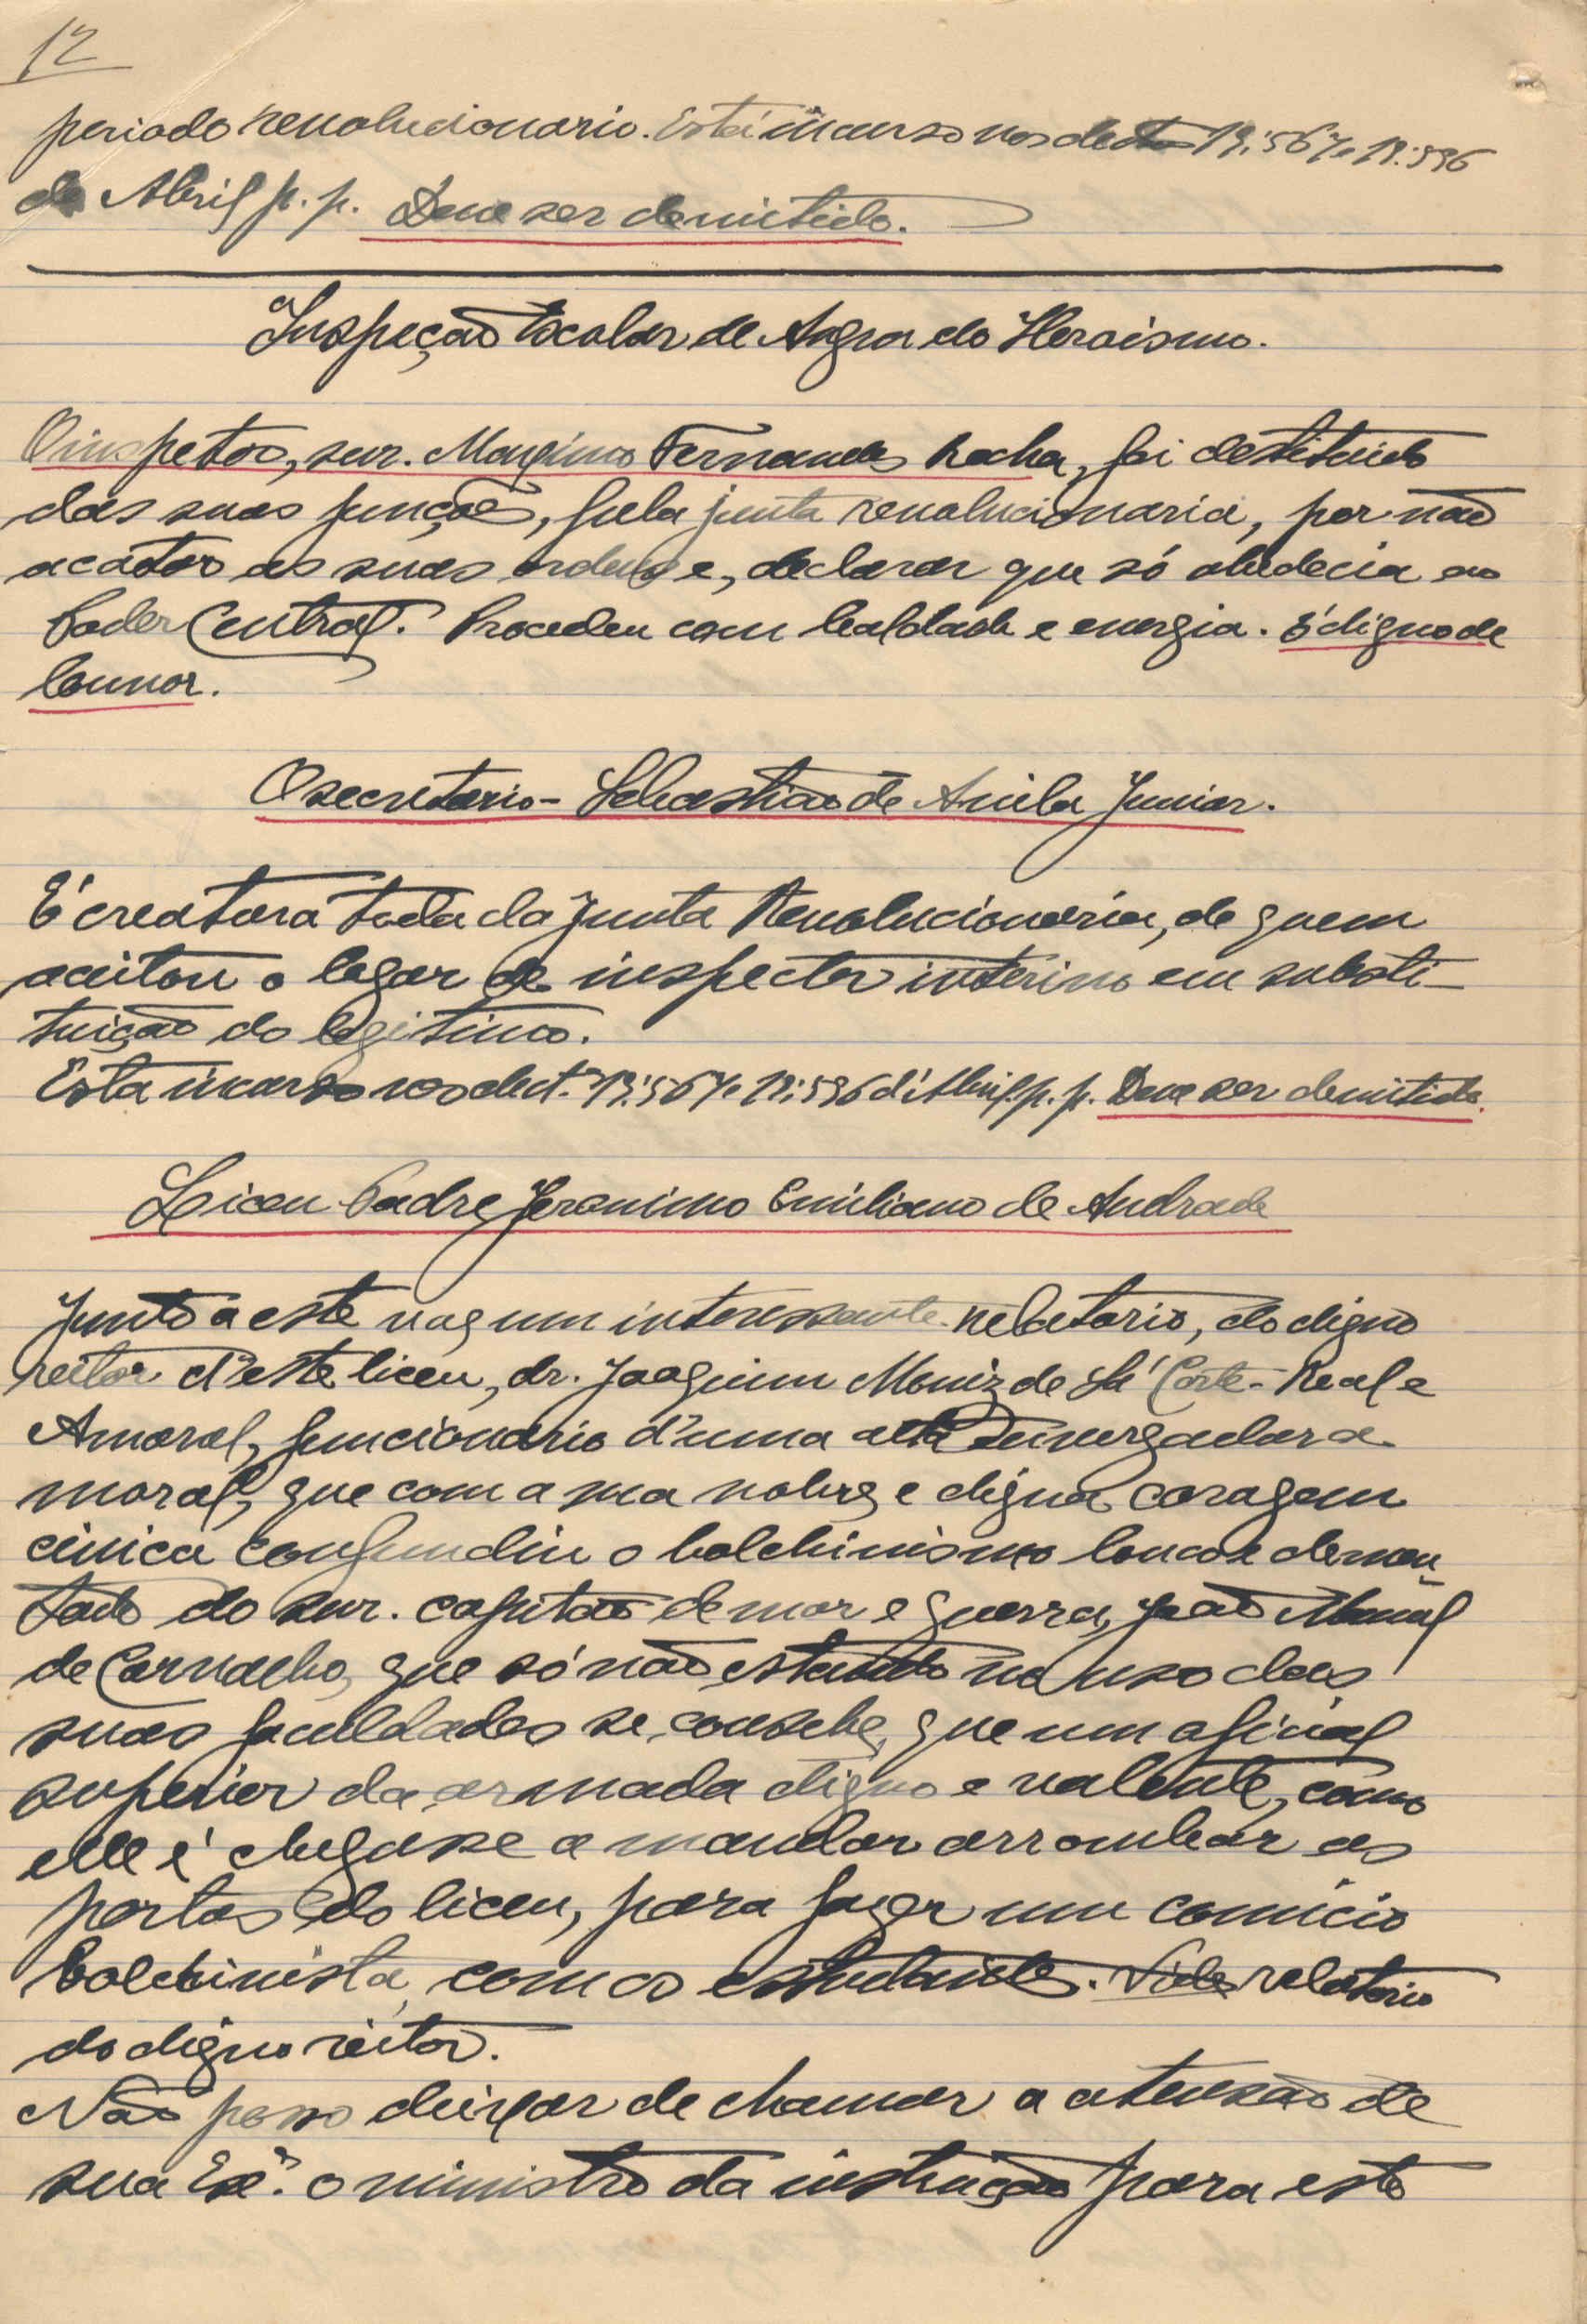 12
periodo revolucionario. Está incurso nos dectos 19:567 e 19:596
de Abril p. p. Deve ser demitido.
Inspeção Escolar de Angra do Heroismo.
O inspetor, snr. Maximino Fernandes Rocha, foi destituido
das suas funções, pela junta revolucionaria, por não
acatar as suas ordens e, declarar que só obedecia ao
Poder Central. Procedeu com lealdade e energia. É digno de
louvor.
O secretario - Sebastião de Avila Junior.
É creatura toda da Junta Revolucionaria, de quem
aceitou o logar de inspector interino em substi-
tuição do legitimo.
Está incurso nos dect.os 19:567 e 19:596 d'Abril p. p. Deve ser demitido.
Liceu Padre Jeronimo Emiliano de Andrade
Junto a este vae um interessante relatorio, do digno
reitor d'este liceu, dr. Joaquim Moniz de Sá Corte-Real e
Amaral, funcionario d'uma alta envergadura
moral, que com a sua nobre e digna coragem
civica confundiu o bolchivismo louco e
do snr. capitão de mar e guerra, João Manuel
de Carvalho, que só não estando no uso das
suas faculdades se concebe, que um oficial
superior da armada digno e valente, como
elle é chegasse a mandar arrombar as
portas do liceu, para fazer um comicio
bolchivista, com os estudantes. Vide relatorio
do digno reitor.
Não posso deixar de chamar a atensão de
sua Exª. o ministro da instrução para este